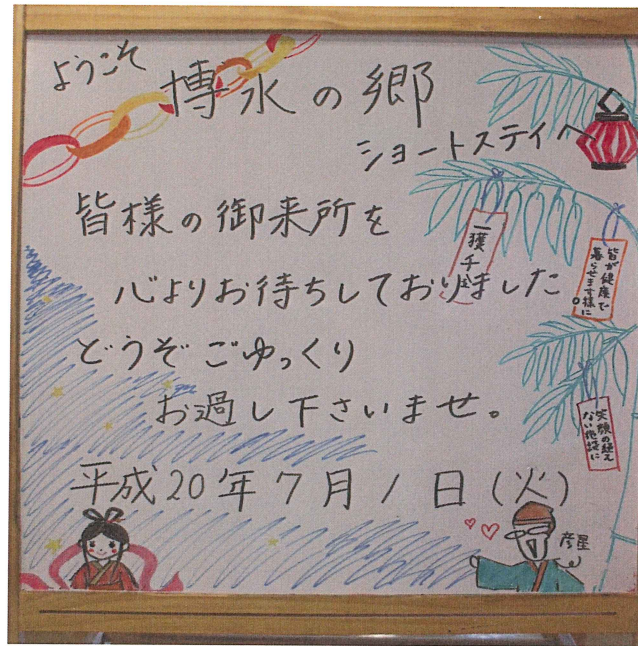 ようこそ
博水の郷
ショートステイへ
皆様の御来所を
心よりお待ちしておりました。
どうぞごゆっくり
お過し下さいませ。
平成20年7月1日(火)
一獲千金
皆が健康で
暮らせます様に
笑顔の絶え
ない施設に
彦星